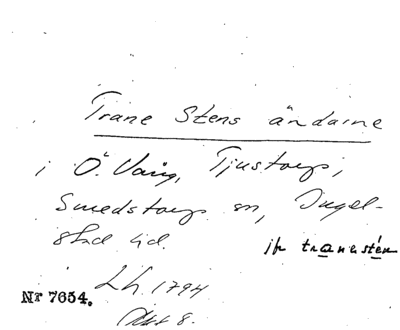 Trane Stens ändarne
i Ö. Vång, Tjustorp,
Smedstorps sn, Ingel-
stad hd.
jfr tranestén
Lh. 1794
Nr 7654.
Akt 8.